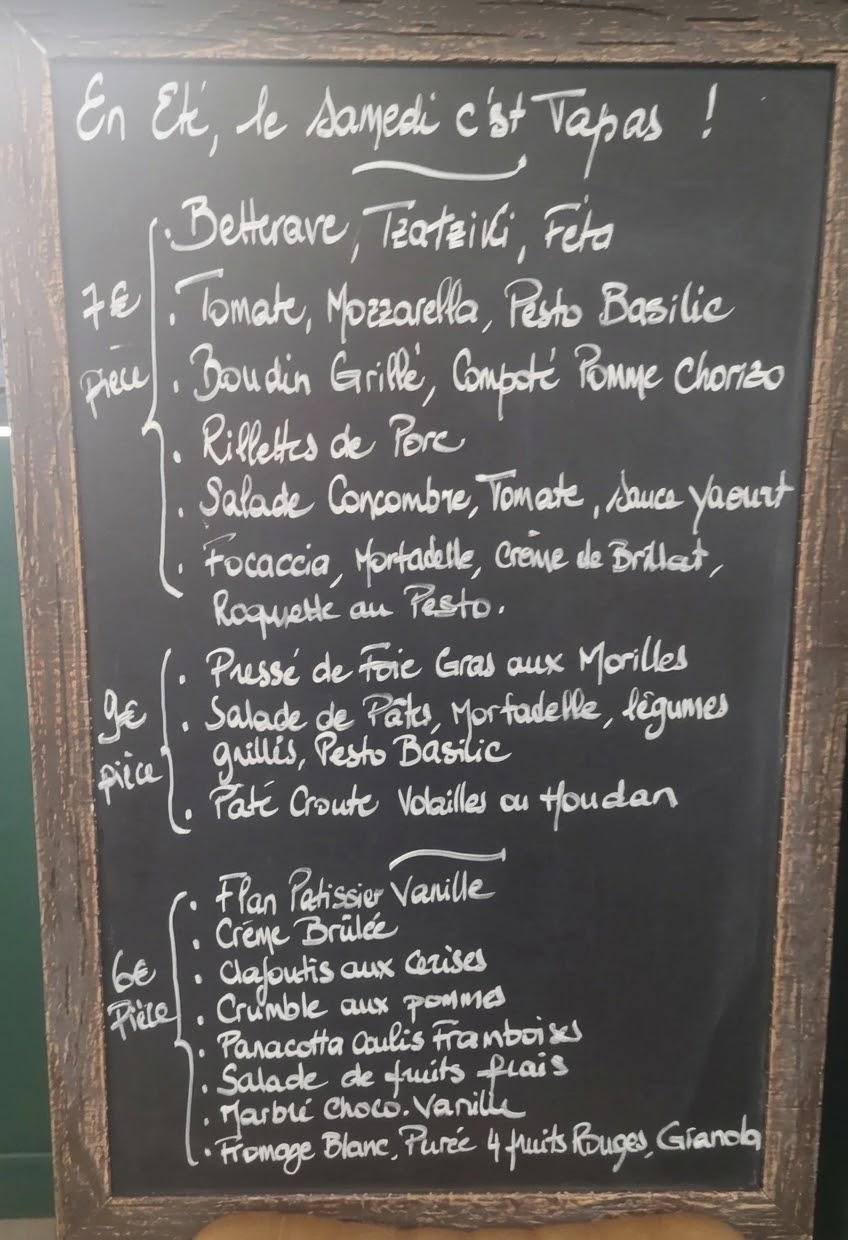 En Eté, le Samedi c'est Tapas !
. Betterave, Tzatziki, Féta
7€ . Tomate, Mozzarella, Pesto Basilic
pièce . Boudin Grillé, Compoté Pomme Chorizo
. Rillettes de Porc
. Salade Concombre, Tomate, Sauce Yaourt
. Focaccia, Mortadelle, Crème de Brillat,
Roquette au Pesto.
. Pressé de Foie Gras aux Morilles
9€ . Salade de Pâtes, Mortadelle, légumes
pièce grillés, Pesto Basilic
. Paté Croute Volailles ou Houdan
. Flan Patissier Vanille
. Crème Brûlée
6€ . Clafoutis aux Cerises
Pièce . Crumble aux pommes
. Panacotta Coulis Framboises
. Salade de fruits frais
. Marbré Choco. Vanille
. Fromage Blanc, Purée 4 fruits Rouges, Granola